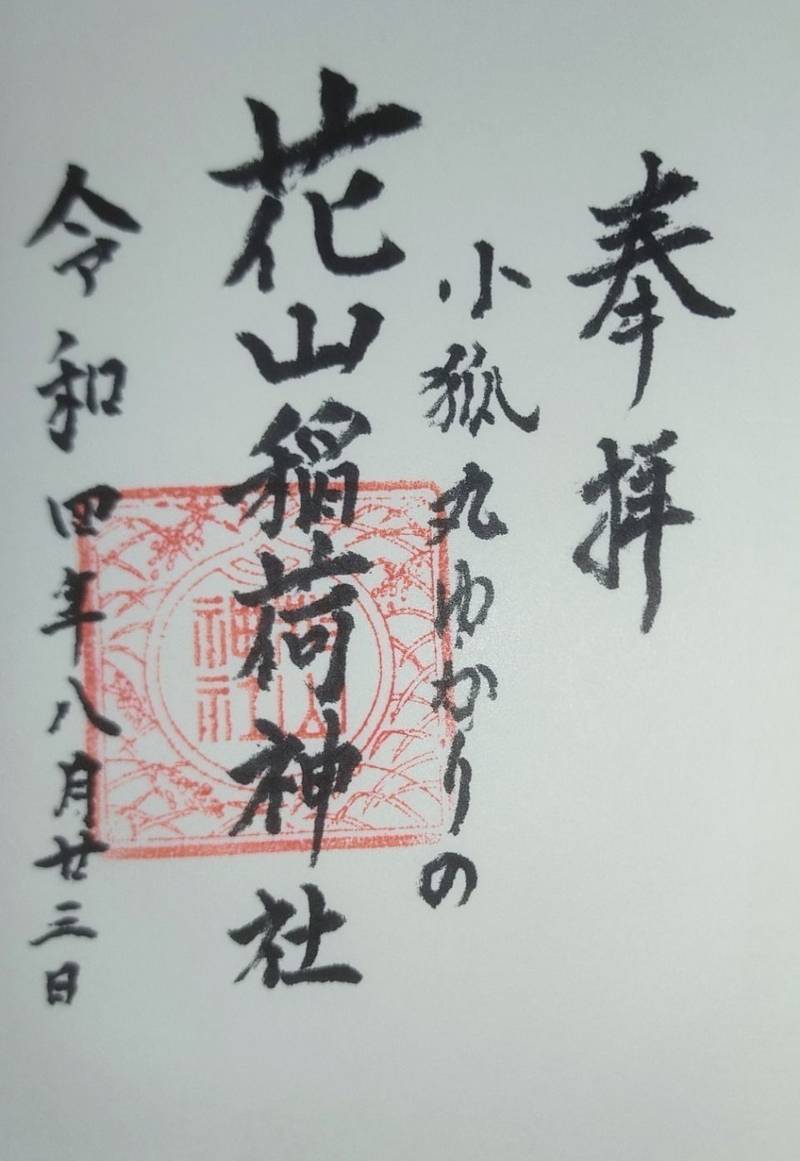 奉拝
小狐丸ゆかりの
花山稲荷神社
令和四年八月廿三日